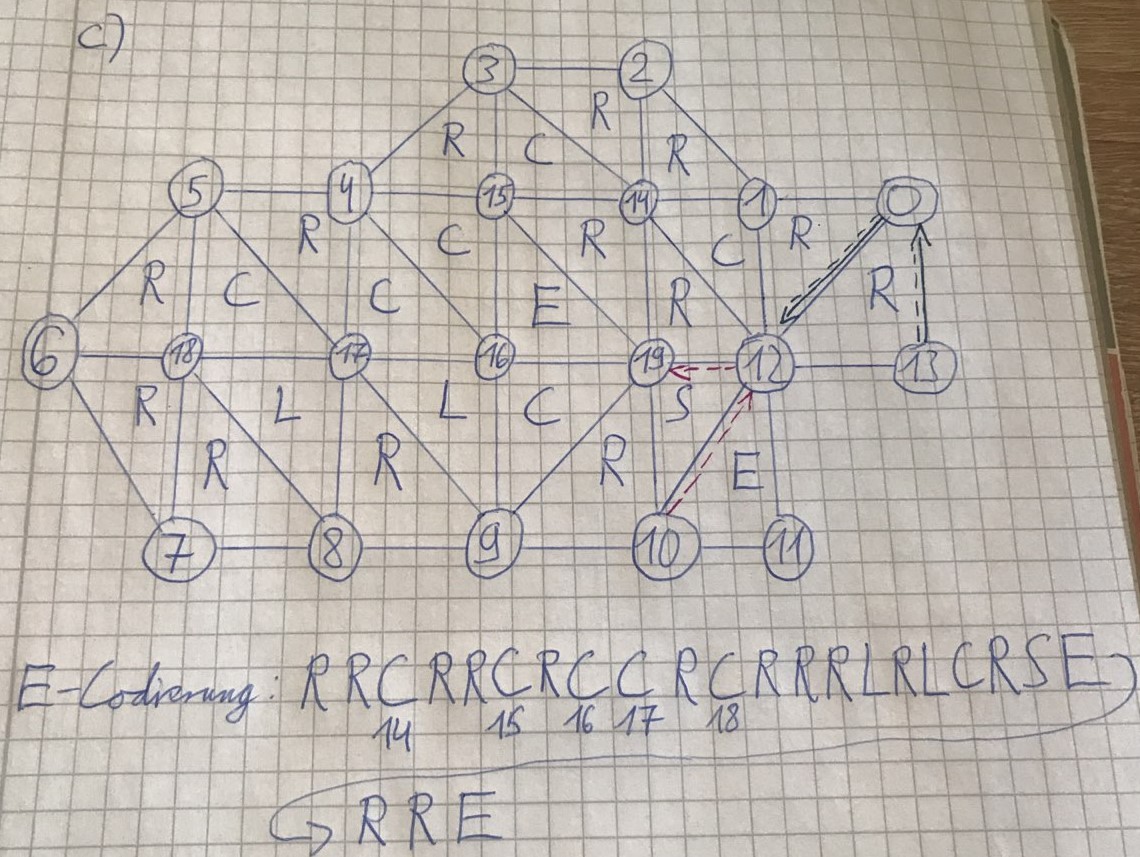 c)
3 2
R C R R
5 4 15 14 1 0
R C R C C E R R C R R
6 18 17 16 19 12 13
R R L R L C R S E
7 8 9 10 11
E-Codierung: R R C R R C R C C R C R R R L R L C R S E
14 15 16 17 18
R R E